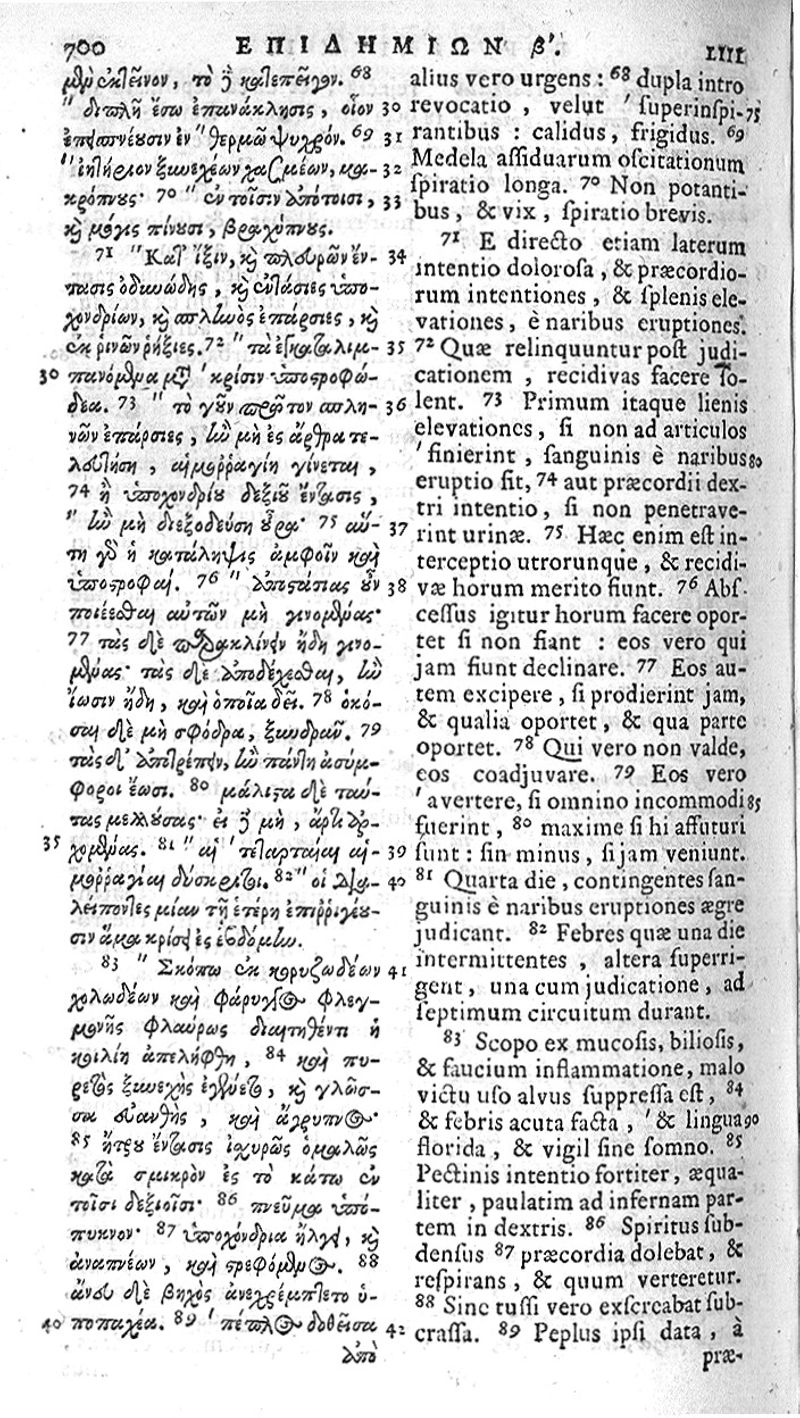 700 ΕΠΙΔΗΜΙΩΝ β'. LIII
μὲν ἐκτεῖνον, τὸ δὲ κατεπεῖγον. 68
" διπλῆ ἔσω ἐπανάκλησις, οἷον 30
ἐπεισπνέουσιν ἐν " θερμῶ ψυχρόν. 69 31
" ἰητήριον ξυνεχέων χασμέων, μα- 32
κρόπνους· 70 " ἐν τοῖσιν ἀπότοισι, 33
καὶ μόγις πίνουσι, βραχύπνους.
71 " Κατ' ἴξιν, καὶ πλευρῶν ἔν- 34
τασις ὀδυνώδης, καὶ ἐντάσιες ὑπο-
χονδρίων, καὶ σπληνὸς ἐπάρσιες, καὶ
ἐκ ῥινῶν ῥήξιες. 72 " τὰ ἐγκαταλιμ- 35
30 πανόμενα μετὰ ' κρίσιν ὑποστροφώ-
δεα. 73 " τὸ γοῦν πρῶτον σπλη- 36
νῶν ἐπάρσιες, ἢν μὴ ἐς ἄρθρα τε-
λευτήση, αἱμοῤῥαγίη γίνεται,
74 ἢ ὑποχονδρίου δεξιοῦ ἔντασις,
" ἢν μὴ διεξοδεύση οὖρα· 75 αὕ- 37
τη γὰρ ἡ κατάληψις ἀμφοῖν καὶ
ὑποστροφαί. 76 " ἀποστάσιας οὖν 38
ποιέεσθαι αὐτῶν μὴ γινομένας·
77 τὰς δὲ παρακλίνειν ἤδη γινο-
μένας· τὰς δὲ ἀποδέχεσθαι, ἢν
ἴωσιν ἤδη, καὶ ὁποῖα δεῖ. 78 ὁκό-
σαι δὲ μὴ σφόδρα, ξυνδρᾶν. 79
τὰς δ' ἀποτρέπειν, ἢν πάντη ἀσύμ-
φοροι ἔωσι. 80 μάλιστα δὲ ταύ-
τας μελλούσας· εἰ δὲ μὴ, ἄρτι ἀρ-
35 χομένας. 81 " αἱ ' τεταρταῖαι αἱ- 39
μοῤῥαγίαι δύσκριτοι. 82 " οἱ δια- 40
λείποντες μίαν τῆ ἑτέρη ἐπιῤῥιγέου-
σιν ἅμα κρίσει ἐς ἑβδόμην.
83 " Σκόπω ἐκ κορυζωδέων 41
χολωδέων καὶ φάρυγγος φλεγ-
μονῆς φλαύρως διαιτηθέντι ἡ
κοιλίη ἀπελήφθη, 84 καὶ πυ-
ρετὸς ξυνεχὴς ἐγένετο, καὶ γλῶσ-
σα εὐανθὴς, καὶ ἄγρυπνος·
85 ἤτρου ἔντασις ἰχυρῶς ὁμαλῶς
κατὰ σμικρὸν ἐς τὸ κάτω ἐν
τοῖσι δεξιοῖσι· 86 πνεῦμα ὑπό-
πυκνον· 87 ὑποχόνδρια ἤλγει, καὶ
ἀναπνέων, καὶ στρεφόμενος. 88
ἄνευ δὲ βηχὸς ἀνεχρέμπτετο ὑ-
40 ποπαχέα. 89 ' πέπλος δοθεῖσα 42
ἀπὸ
alius vero urgens: 68 dupla intro
revocatio, velut ' superinspi- 75
rantibus: calidus, frigidus. 69
Medela assiduarum oscitationum
spiratio longa. 70 Non potanti-
bus, & vix, spiratio brevis.
71 E directo etiam laterum
intentio dolorosa, & præcordio-
rum intentiones, & splenis ele-
vationes, è naribus eruptiones.
72 Quæ relinquuntur post judi-
cationem, recidivas facere so-
lent. 73 Primum itaque lienis
elevationes, si non ad articulos
' finierint, sanguinis è naribus 80
eruptio fit, 74 aut præcordii dex-
tri intentio, si non penetrave-
rint urinæ. 75 Hæc enim est in-
terceptio utrorunque, & recidi-
væ horum merito fiunt. 76 Abs-
cessus igitur horum facere opor-
tet si non fiant: eos vero qui
jam fiunt declinare. 77 Eos au-
tem excipere, si prodierint jam,
& qualia oportet, & qua parte
oportet. 78 Qui vero non valde,
eos coadjuvare. 79 Eos vero
' avertere, si omnino incommodi 85
fuerint, 80 maxime si hi affuturi
sunt: sin minus, si jam veniunt.
81 Quarta die, contingentes san-
guinis è naribus eruptiones ægre
judicant. 82 Febres quæ una die
intermittentes, altera superri-
gent, una cum judicatione, ad
septimum circuitum durant.
83 Scopo ex mucosis, biliosis,
& faucium inflammatione, malo
victu uso alvus suppressa est, 84
& febris acuta facta, ' & lingua 90
florida, & vigil sine somno. 85
Pectinis intentio fortiter, æqua-
liter, paulatim ad infernam par-
tem in dextris. 86 Spiritus sub-
densus 87 præcordia dolebat, &
respirans, & quum verteretur.
88 Sine tussi vero exscreabat sub-
crassa. 89 Peplus ipsi data, à
præ-